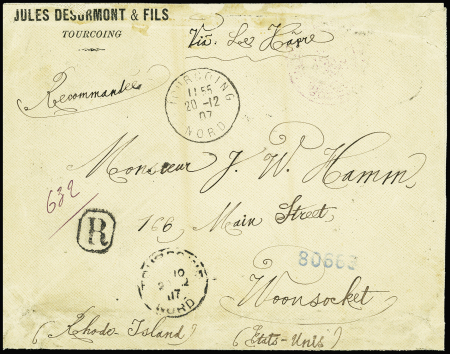 JULES DESURMONT & FILS
TOURCOING
Via Le Hâvre
Recommandée
TOURCOING
11 55
20-12
07
NORD
Monsieur J. W. Hamm
632
166 Main Street,
R
80663
TOURCOING
10
07
NORD
Woonsocket
(Rhode-Island) (Etats-Unis)